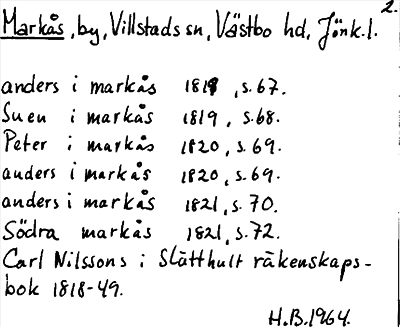 2.
Markås, by, Villstads sn, Västbo hd, Jönk.l.
anders i markås 1818, s.67.
Suen i markås 1819, s.68.
Peter i markås 1820, s.69.
anders i markås 1820, s.69.
anders i markås 1821, s.70.
Södra markås 1821, s.72.
Carl Nilssons i Slätthult räkenskaps-
bok 1818-49.
H.B.1964.